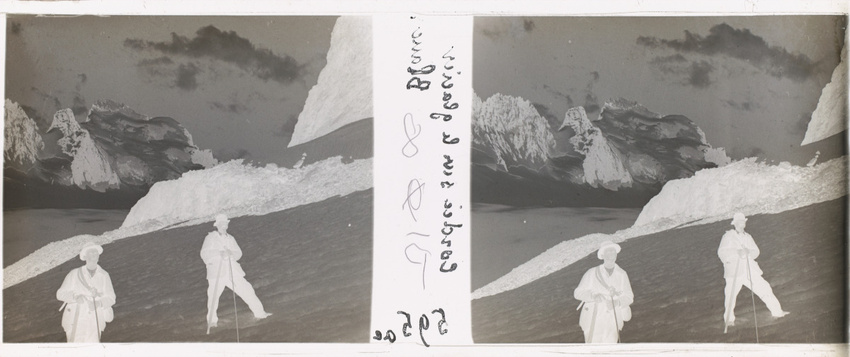 Cordée sur le glacier
Blanc.
595
a